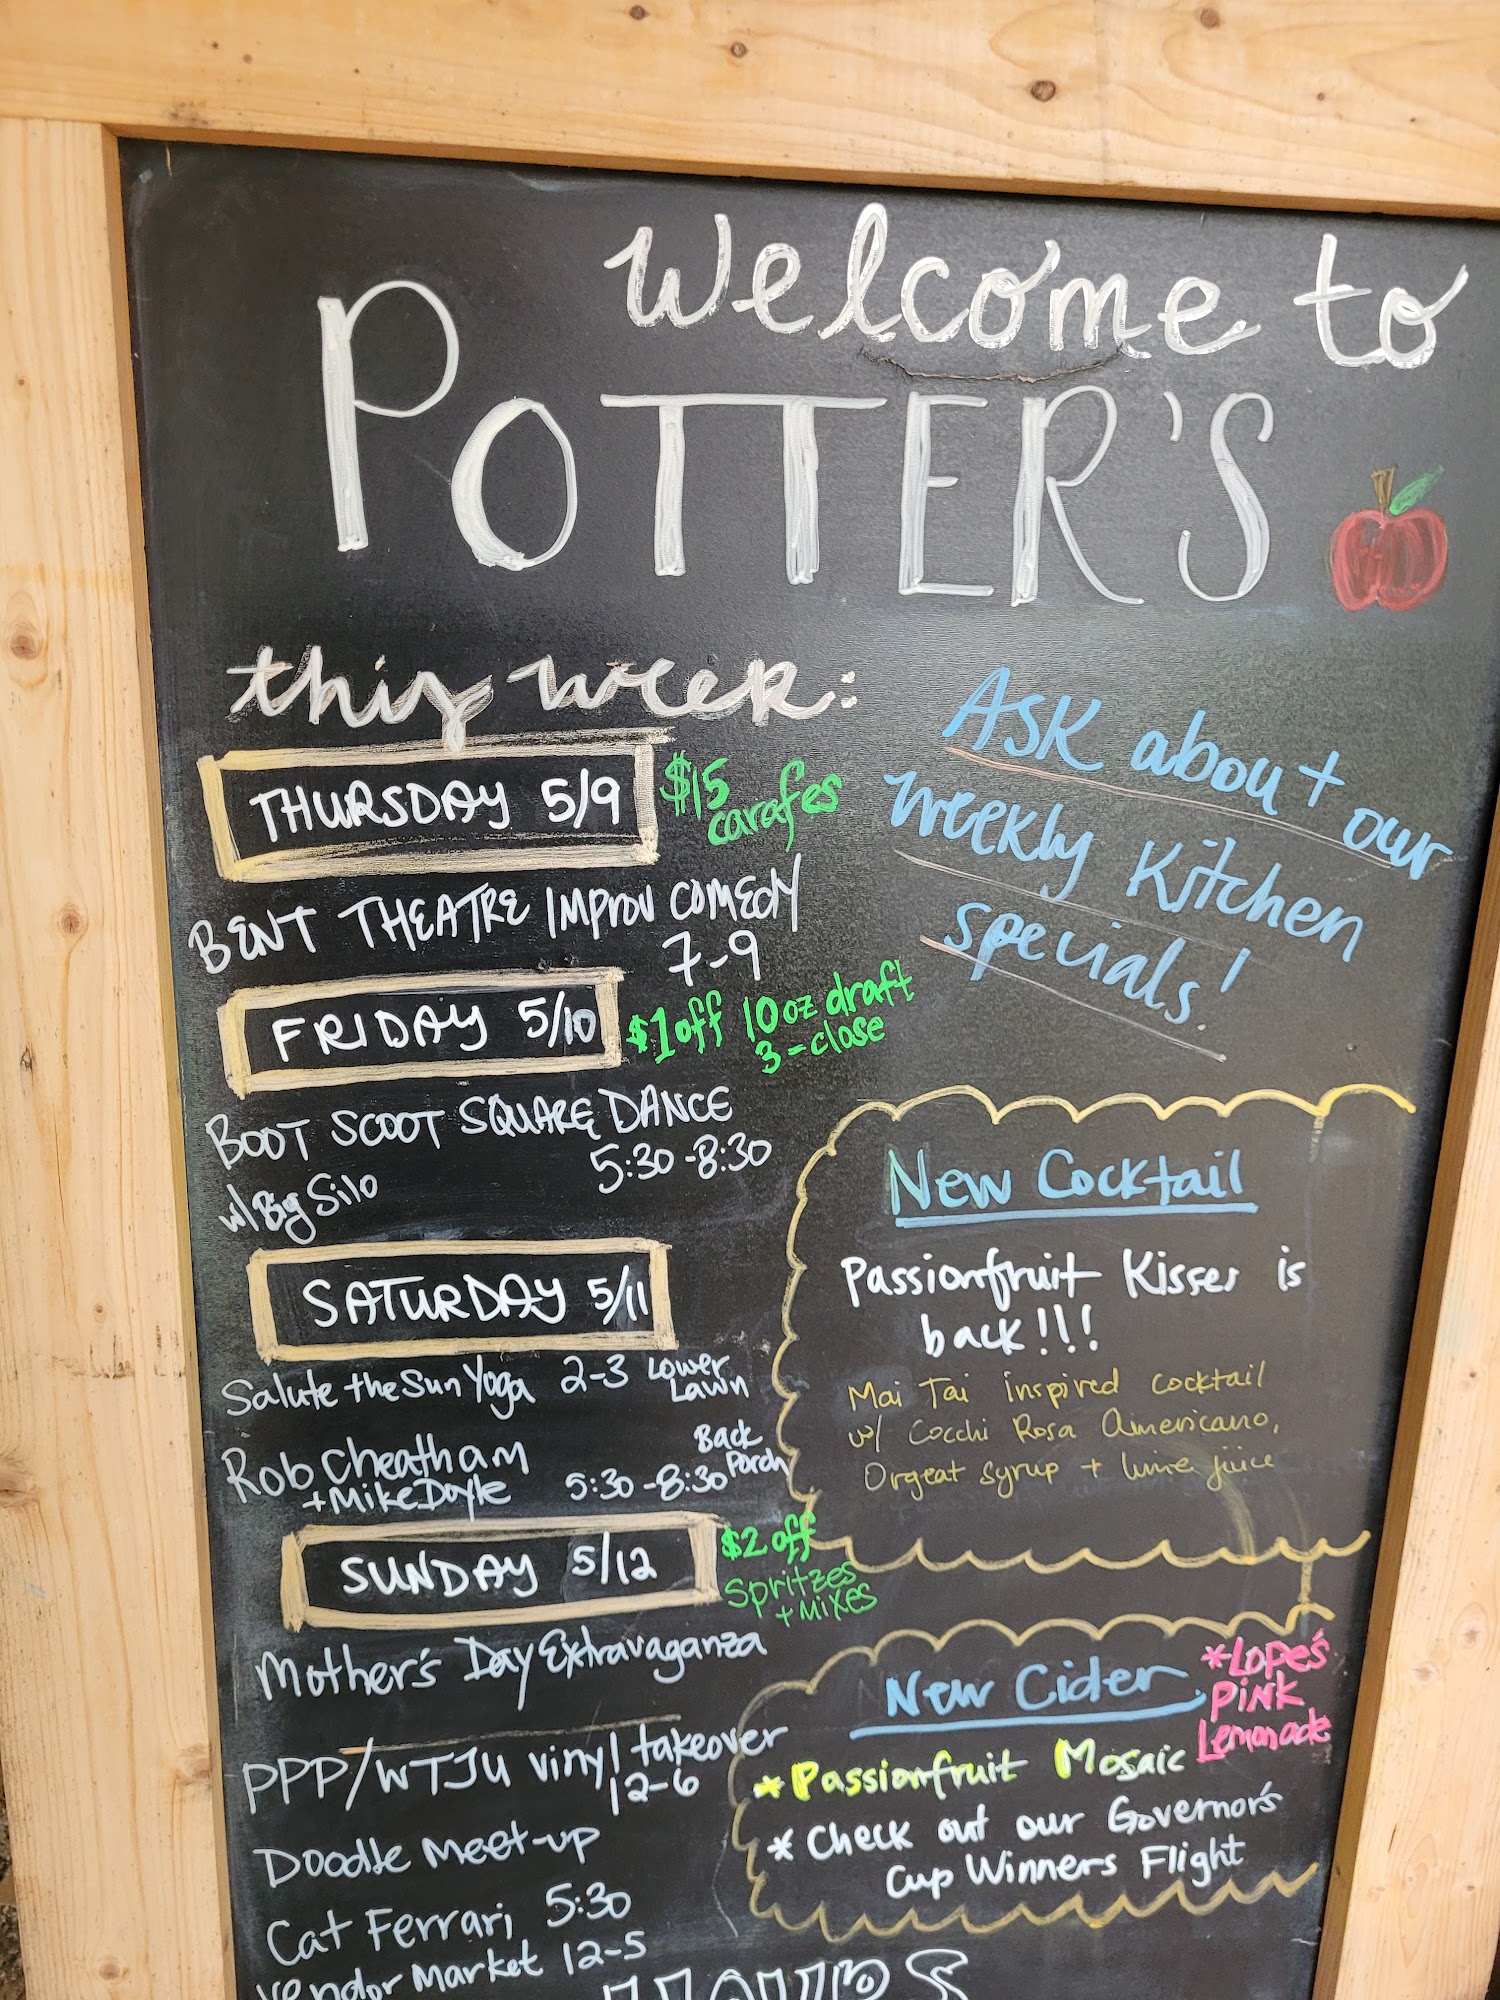 Welcome to
POTTER'S
this week:
THURSDAY 5/9
$15
carafes
BENT THEATRE IMPROV COMEDY
7-9
FRIDAY 5/10
$1 off 10oz draft
3-close
BOOT SCOOT SQUARE DANCE
5:30-8:30
w/ Big Silo
SATURDAY 5/11
Salute the Sun Yoga 2-3 Lower
Lawn
Rob Cheatham
+ Mike Doyle 5:30-8:30 Back
Porch
SUNDAY 5/12
$2 off
Spritzes
+ MIXES
Mother's Day Extravaganza
PPP/WTJU vinyl takeover
12-6
Doodle Meet-up
Cat Ferrari 5:30
Vendor Market 12-5
Ask about our
weekly kitchen
specials!
New Cocktail
Passionfruit Kisses is
back!!!
Mai Tai inspired cocktail
w/ Cocchi Rosa Americano,
Orgeat syrup + lime juice
New Cider
*LOPE'S
PINK
Lemonade
*Passionfruit Mosaic
* Check out our Governor's
Cup Winners Flight
HOURS